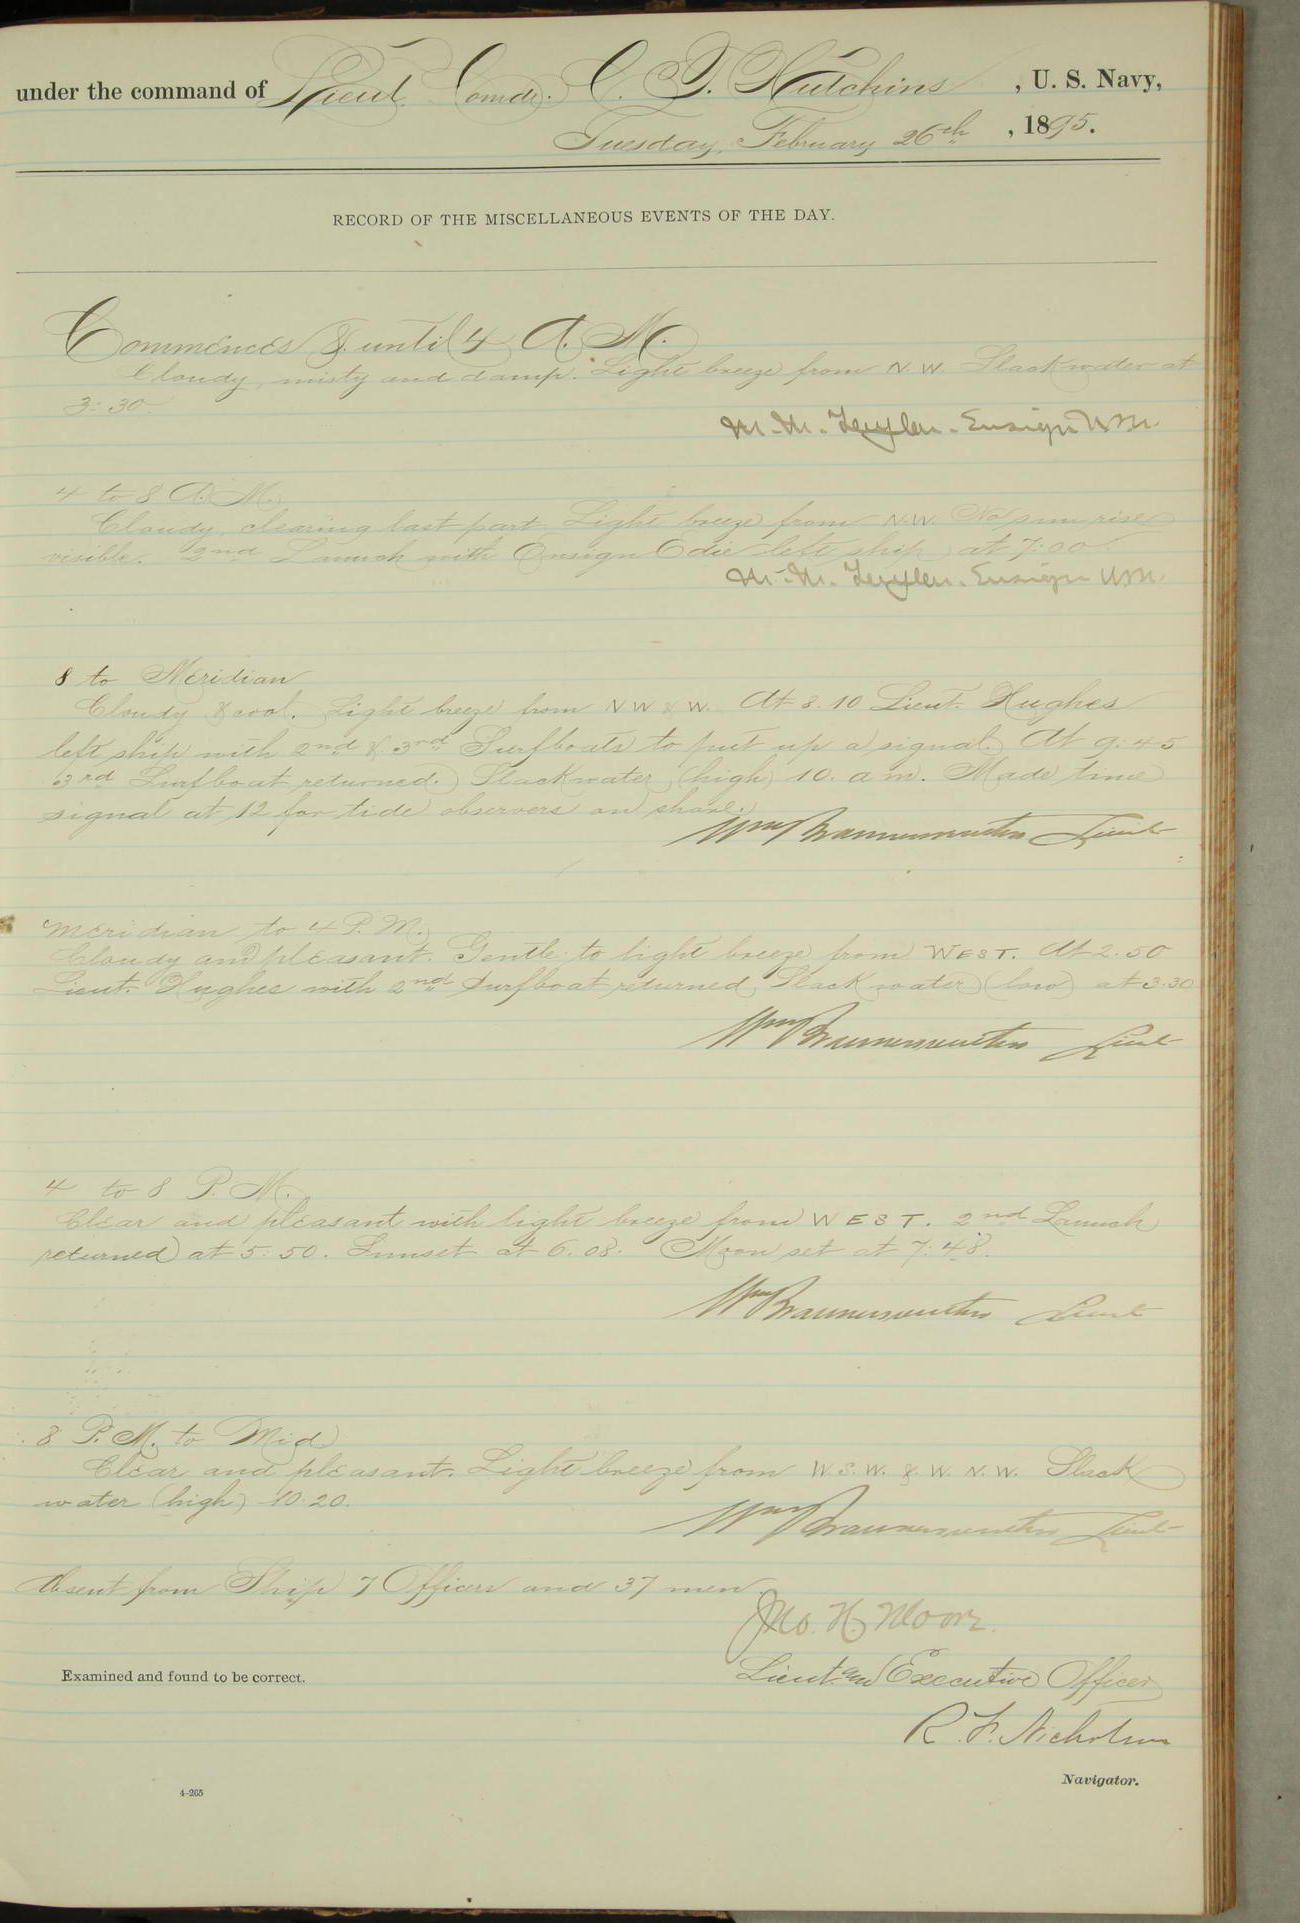 under the command of Lieut. Comdr. C. T. Hutchins, U. S. Navy,
Tuesday, February 26th, 1895.
RECORD OF THE MISCELLANEOUS EVENTS OF THE DAY.
Commences & until 4 A. M.
Cloudy, misty and damp. Light breeze from N.W. Slack water at
3:30.
M. M. Taylor. Ensign USN.
4 to 8 A. M.
Cloudy, clearing last part. Light breeze from N.W. No sun rise
visible. 2nd Launch with Ensign Edie left ship at 7:00.
M. M. Taylor. Ensign USN.
8 to Meridian
Cloudy & cool. Light breeze from NW & W. At 8.10 Lieut. Hughes
left ship with 2nd & 3rd Surfboats to put up a signal. At 9:45
3rd Surfboat returned. Slack water (high) 10. a m. Made time
signal at 12 for tide observers on shore.
Wm Braunersreuther Lieut
Meridian to 4 P. M.
Cloudy and pleasant. Gentle to light breeze from WEST. At 2.50
Lieut. Hughes with 2nd Surfboat returned. Slack water (low) at 3.30
Wm Braunersreuther Lieut
4 to 8 P. M.
Clear and pleasant with light breeze from WEST. 2nd Launch
returned at 5:50. Sunset at 6.08. Moon set at 7:48.
Wm Braunersreuther Lieut
8 P. M. to Mid
Clear and pleasant. Light breeze from W.S.W. & W.N.W. Slack
water (high) 10.20.
Wm Braunersreuther Lieut
Absent from Ship 7 Officers and 37 men
Jno. H. Moore.
Lieut. and Executive Officer
Examined and found to be correct.
R. F. Nicholson
Navigator.
4-265